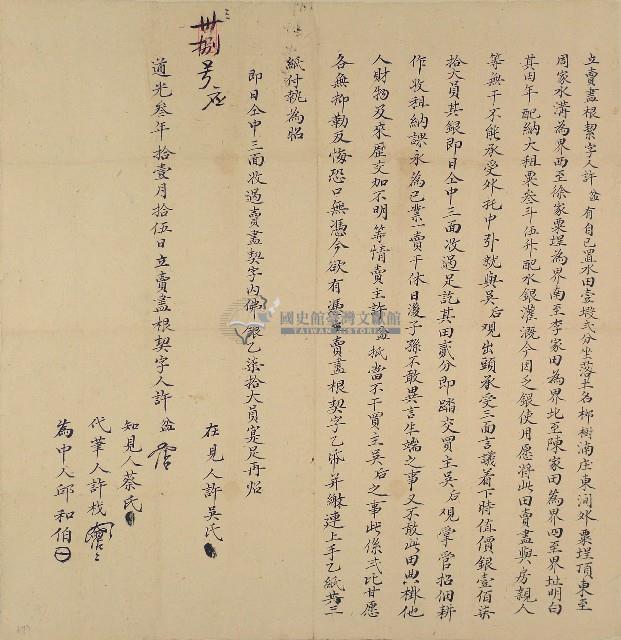 立賣盡根契字人許盆有自己置水田壹塅弍分坐落土名柳樹湳庄東澗外粟埕頂東至
周家水溝為界西至徐家粟埕為界南至李家田為界北至陳家田為界四至界址明白
其田年配納大租粟叁斗伍升配水銀灌溉今因乏銀使用愿將此田賣盡與房親人
等無干不能承受外托中引就與吳后观出頭承受三面言議着下時值價銀壹佰柒
拾大員其銀即日仝中三面收過足訖其田貳分即踏交買主吳后观掌管招佃耕
作收租納課永為己業一賣千休日後子孫不敢異言生端之事又不敢此田典掛他
人財物及來歷交加不明等情賣主許盆抵當不干買主吳后之事此係弍比甘愿
各無抑勒反悔恐口無憑今欲有憑立賣盡根契字乙紙并繳連上手乙紙共二
紙付執為炤
即日仝中三面收過賣盡契字內佛銀乙柒拾大員完足再炤
在見人許吳氏
道光叁年拾壹月拾伍日立賣盡根契字人許盆
知見人蔡氏
代筆人許栈
為中人邱和伯
卅捌号
國史館臺灣文獻館
TAIWAN HISTORICA